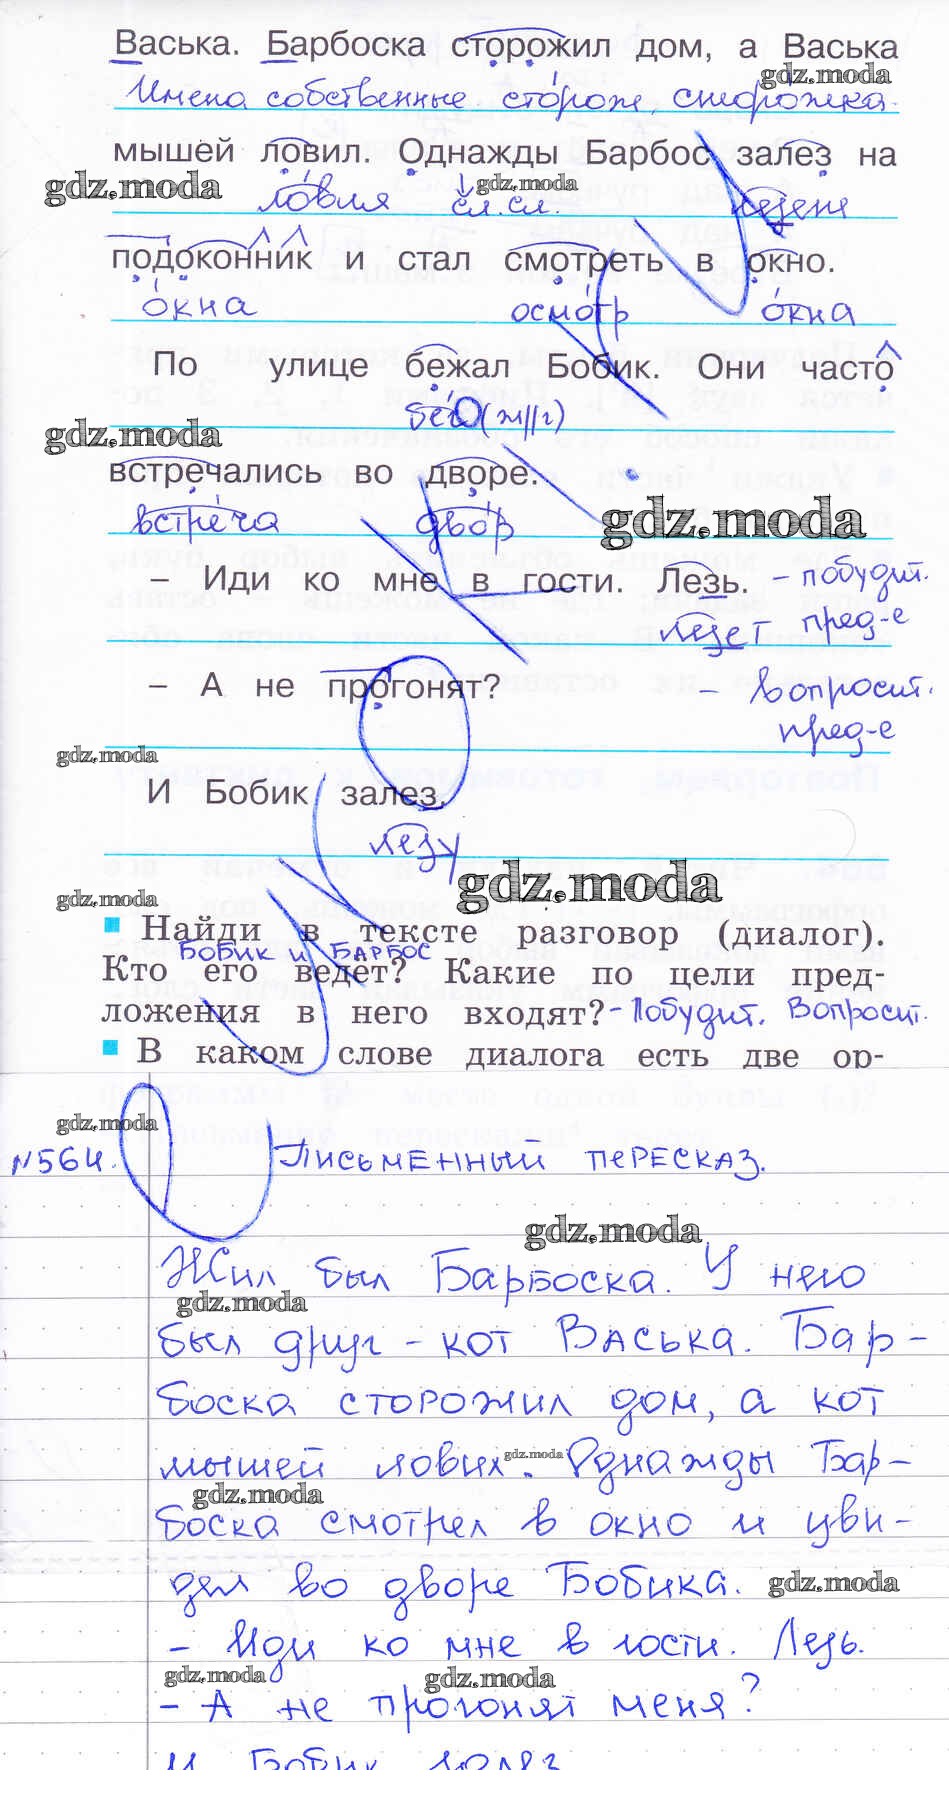 Васька. Барбоска сторожил дом, а Васька
gdz.moda
Имена собственные сторож, сторожка.
мышей ловил. Однажды Барбос залез на
gdz.moda gdz.moda
ловля сл.сл. лезет
подоконник и стал смотреть в окно.
окна осмотр окна
По улице бежал Бобик. Они часто
бег (ж||г)
gdz.moda
встречались во дворе.
встреча двор
gdz.moda
– Иди ко мне в гости. Лезь. – побудит.
лезет пред-е
– А не прогонят? – вопросит.
пред-е
gdz.moda
И Бобик залез.
лезу
gdz.moda
gdz.moda
Найди в тексте разговор (диалог).
БОБИК И БАРБОС
Кто его ведет? Какие по цели пред-
ложения в него входят? – Побудит. Вопросит.
В каком слове диалога есть две ор-
gdz.moda
№564. Письменный пересказ.
gdz.moda
Жил был Барбоска. У него
gdz.moda
был друг – кот Васька. Бар-
боска сторожил дом, а кот
мышей ловил. Однажды Бар-
gdz.moda
gdz.moda
боска смотрел в окно и уви-
дел во дворе Бобика.
gdz.moda
– Иди ко мне в гости. Лезь.
gdz.moda gdz.moda
– А не прогонят меня?
И Бобик залез